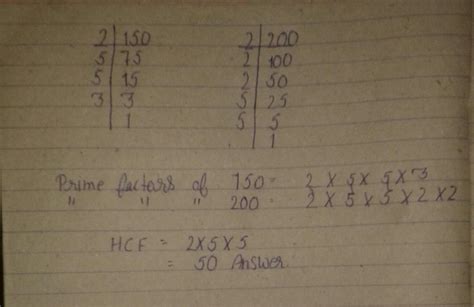 2 | 150    2 | 200
5 | 75    2 | 100
5 | 15    2 | 50
3 | 3    5 | 25
| 1    5 | 5
| 1
Prime factors of 150 = 2 × 5 × 5 × 3
" " " 200 = 2 × 5 × 5 × 2 × 2
HCF = 2×5×5
= 50 Answer.